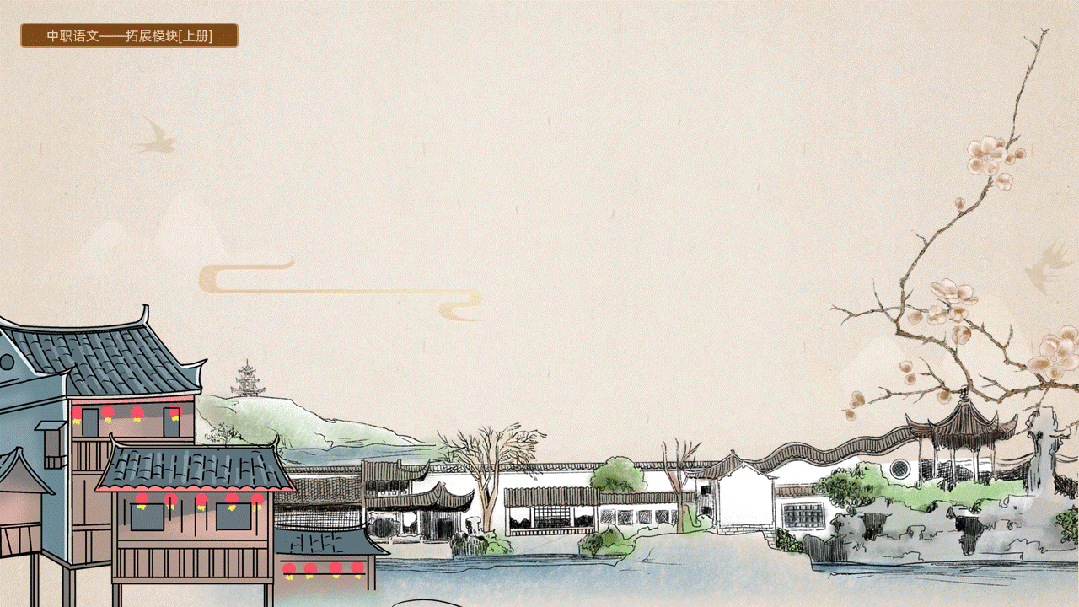 中职语文——拓展模块[上册]